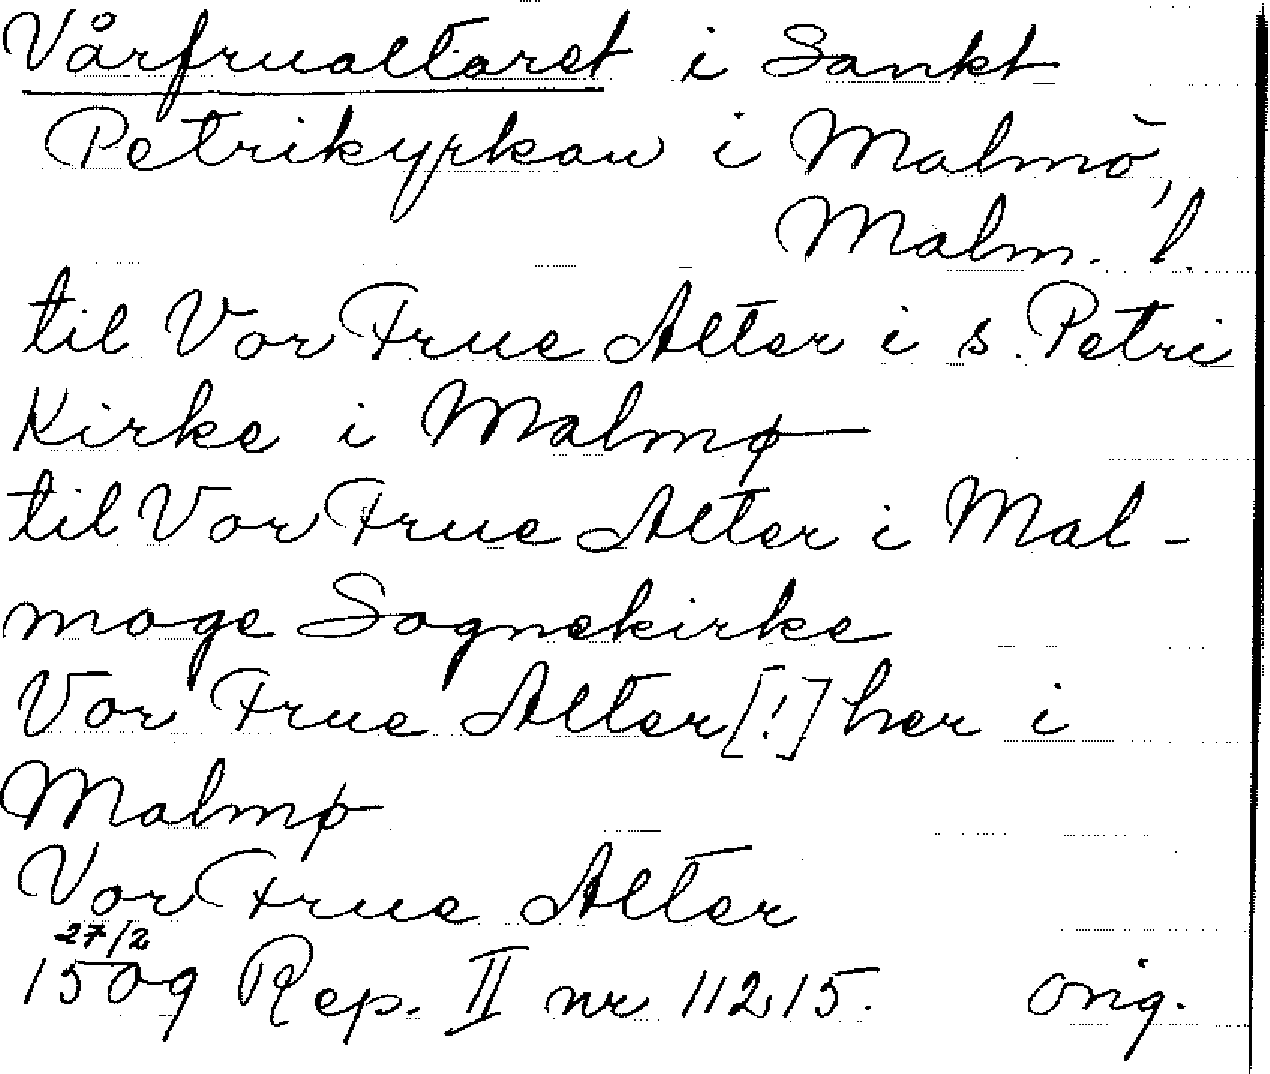 Vårfrualtaret i Sankt
Petrikyrkan i Malmö,
Malm. l.
til Vor Frue Alter i s. Petri
Kirke i Malmø
til Vor Frue Alter i Mal-
moge Sognekirke
Vor Frue Alter [!] her i
Malmø
Vor Frue Alter
27/2
1509 Rep. II nr 11215. orig.